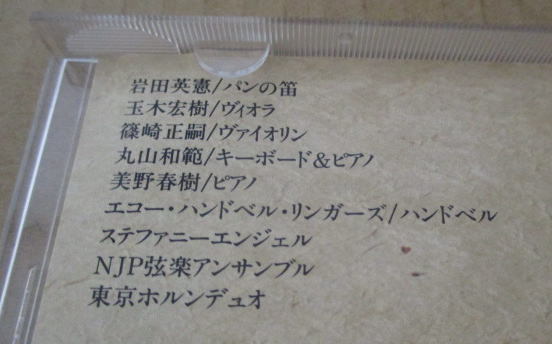 岩田英憲/パンの笛
玉木宏樹/ヴィオラ
篠崎正嗣/ヴァイオリン
丸山和範/キーボード&ピアノ
美野春樹/ピアノ
エコー・ハンドベル・リンガーズ/ハンドベル
ステファニーエンジェル
NJP弦楽アンサンブル
東京ホルンデュオ